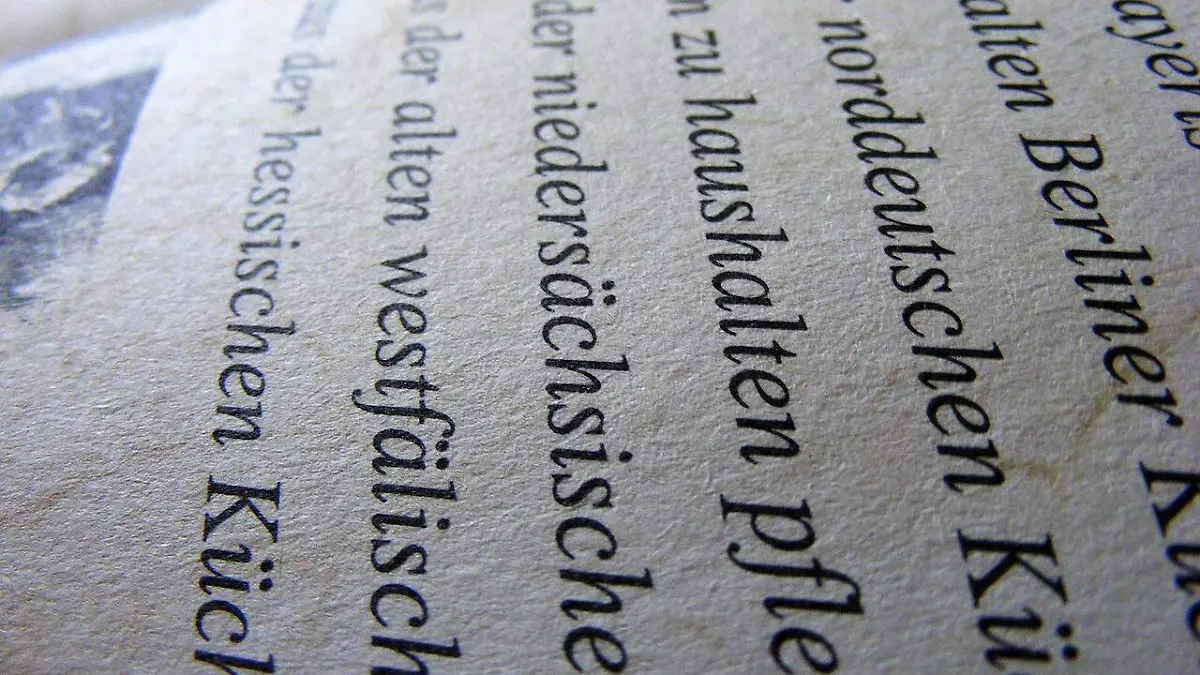 alten Berliner Kü
norddeutschen Kü
n zu haushalten pfle
der niedersächsische
s der alten westfälisch
der hessischen Küch